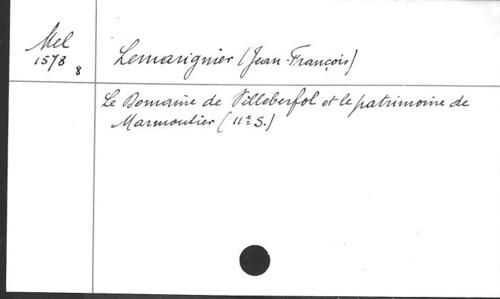 Mel
1578
8
Lemarignier (Jean-François)
Le Domaine de Villeberfol et le patrimoine de
Marmoutier (11e S.)